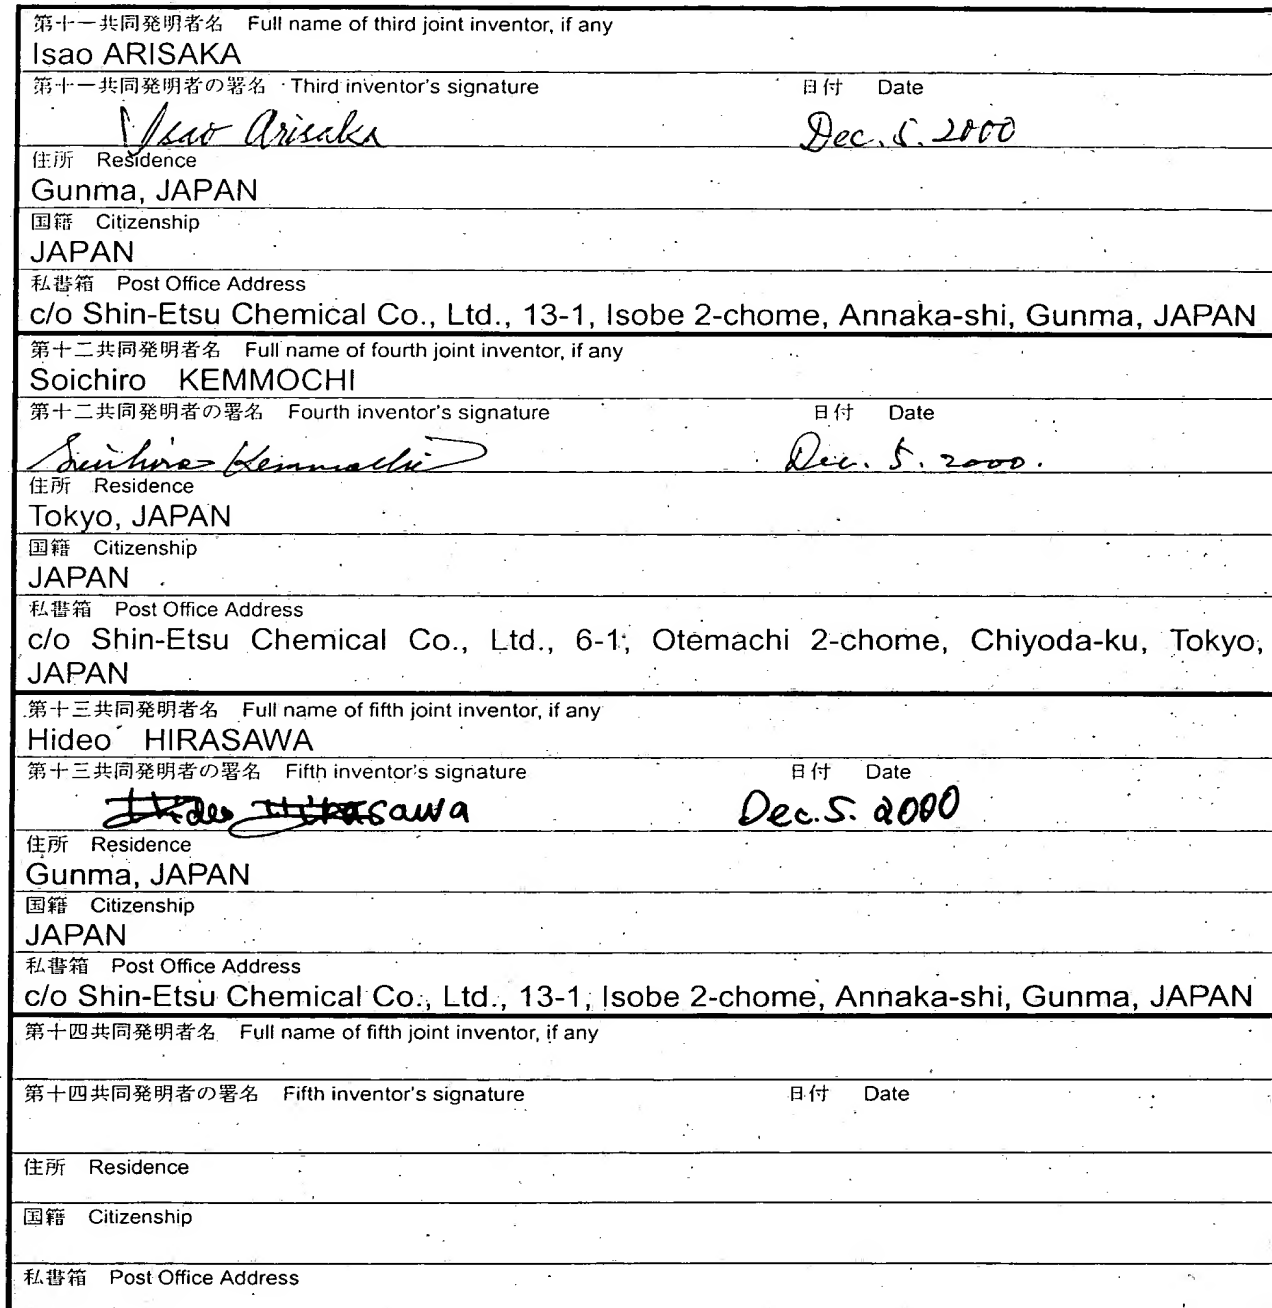 第十一共同発明者名 Full name of third joint inventor, if any
Isao ARISAKA
第十一共同発明者の署名 Third inventor's signature 日付 Date
Isao Arisaka Dec. 5. 2000
住所 Residence
Gunma, JAPAN
国籍 Citizenship
JAPAN
私書箱 Post Office Address
c/o Shin-Etsu Chemical Co., Ltd., 13-1, Isobe 2-chome, Annaka-shi, Gunma, JAPAN
第十二共同発明者名 Full name of fourth joint inventor, if any
Soichiro KEMMOCHI
第十二共同発明者の署名 Fourth inventor's signature 日付 Date
Soichiro Kemmochi Dec. 5. 2000.
住所 Residence
Tokyo, JAPAN
国籍 Citizenship
JAPAN
私書箱 Post Office Address
c/o Shin-Etsu Chemical Co., Ltd., 6-1, Otemachi 2-chome, Chiyoda-ku, Tokyo,
JAPAN
第十三共同発明者名 Full name of fifth joint inventor, if any
Hideo HIRASAWA
第十三共同発明者の署名 Fifth inventor's signature 日付 Date
Hideo Hirasawa Dec. 5. 2000
住所 Residence
Gunma, JAPAN
国籍 Citizenship
JAPAN
私書箱 Post Office Address
c/o Shin-Etsu Chemical Co., Ltd., 13-1, Isobe 2-chome, Annaka-shi, Gunma, JAPAN
第十四共同発明者名 Full name of fifth joint inventor, if any
第十四共同発明者の署名 Fifth inventor's signature 日付 Date
住所 Residence
国籍 Citizenship
私書箱 Post Office Address